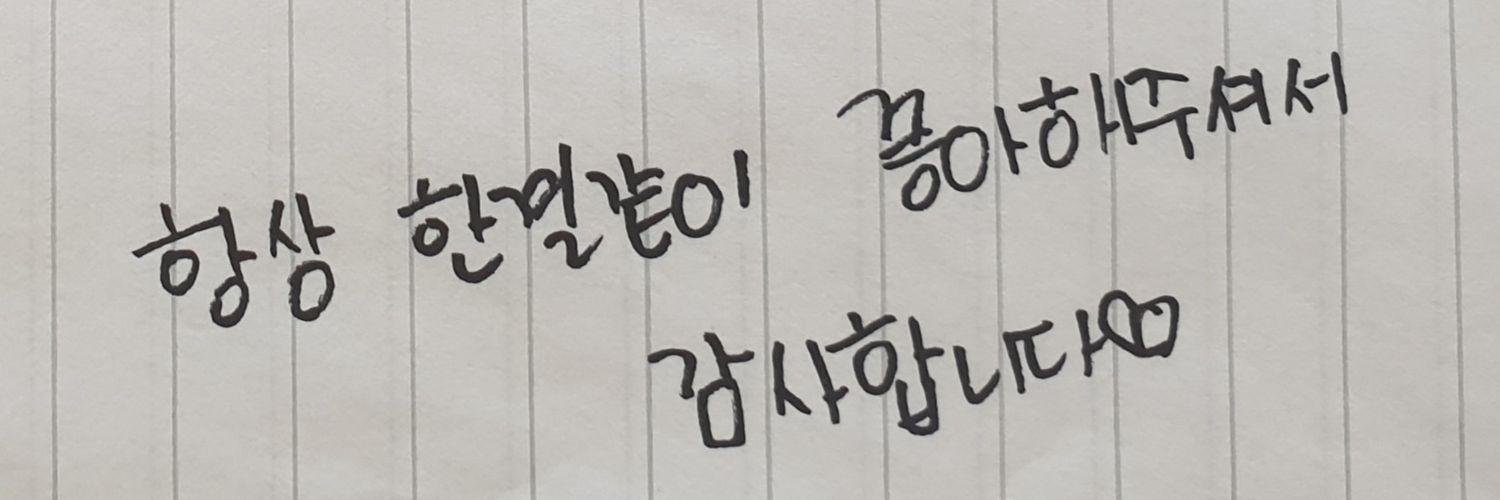 항상 한결같이 좋아해주셔서
감사합니다♡